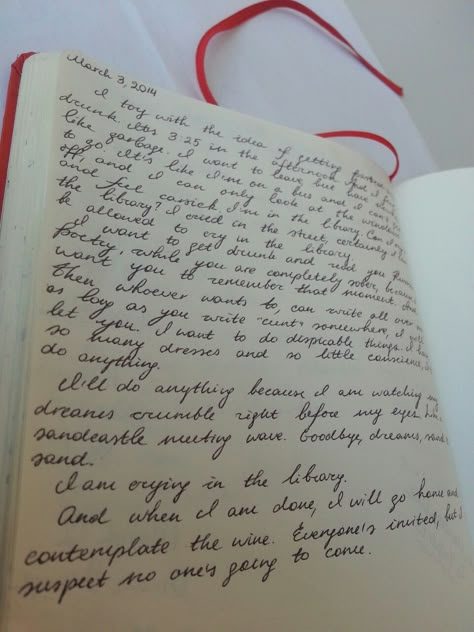 March 3, 2014
I toy with the idea of getting
drunk. It's 3:25 in the afternoon and I feel
like garbage. I want to leave but have
to go. It's like I'm on a bus and I can't get
off, and I can only look at the
and feel carsick. I'm in the library. Can I cry in
the library? I cried in the street, certainly I
be allowed to cry in the library.
I want to get drunk and read you
poetry, while you are completely sober, because I
want you to remember that moment. And
then, whoever wants to, can write all over me
as long as you write "cunt" somewhere, I will
let you. I want to do despicable things. I have
so many dresses and so little conscience, I'll
do anything.
I'll do anything because I am watching my
dreams crumble right before my eyes like a
sandcastle meeting wave. Goodbye, dreams, sand to
sand.
I am crying in the library.
And when I am done, I will go home and
contemplate the wine. Everyone's invited, but I
suspect no one's going to come.